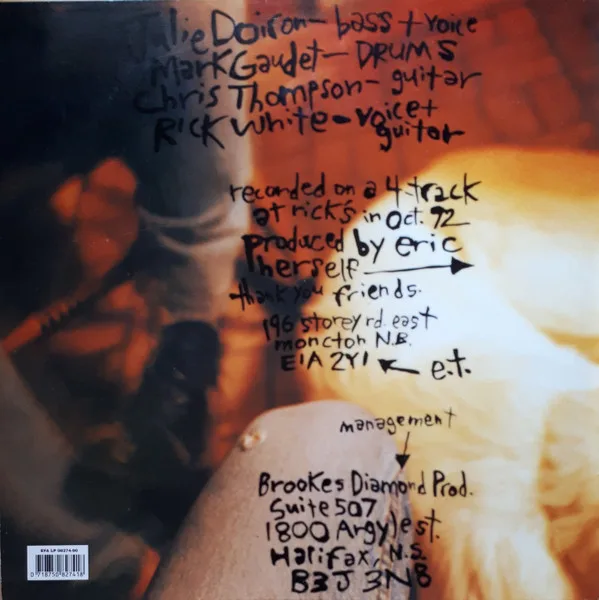 Julie Doiron - bass + voice
Mark Gaudet - DRUMS
Chris Thompson - guitar
Rick White - voice +
guitar
recorded on a 4-track
at rick's in Oct. 92
produced by eric
herself
thank you friends.
196 storey rd. east
moncton N.B.
E1A 2Y1
e.t.
management
Brookes Diamond Prod.
Suite 507
1800 Argyle st.
Halifax, N.S.
B3J 3N8
EFA LP 08274-00
0 718750 827418